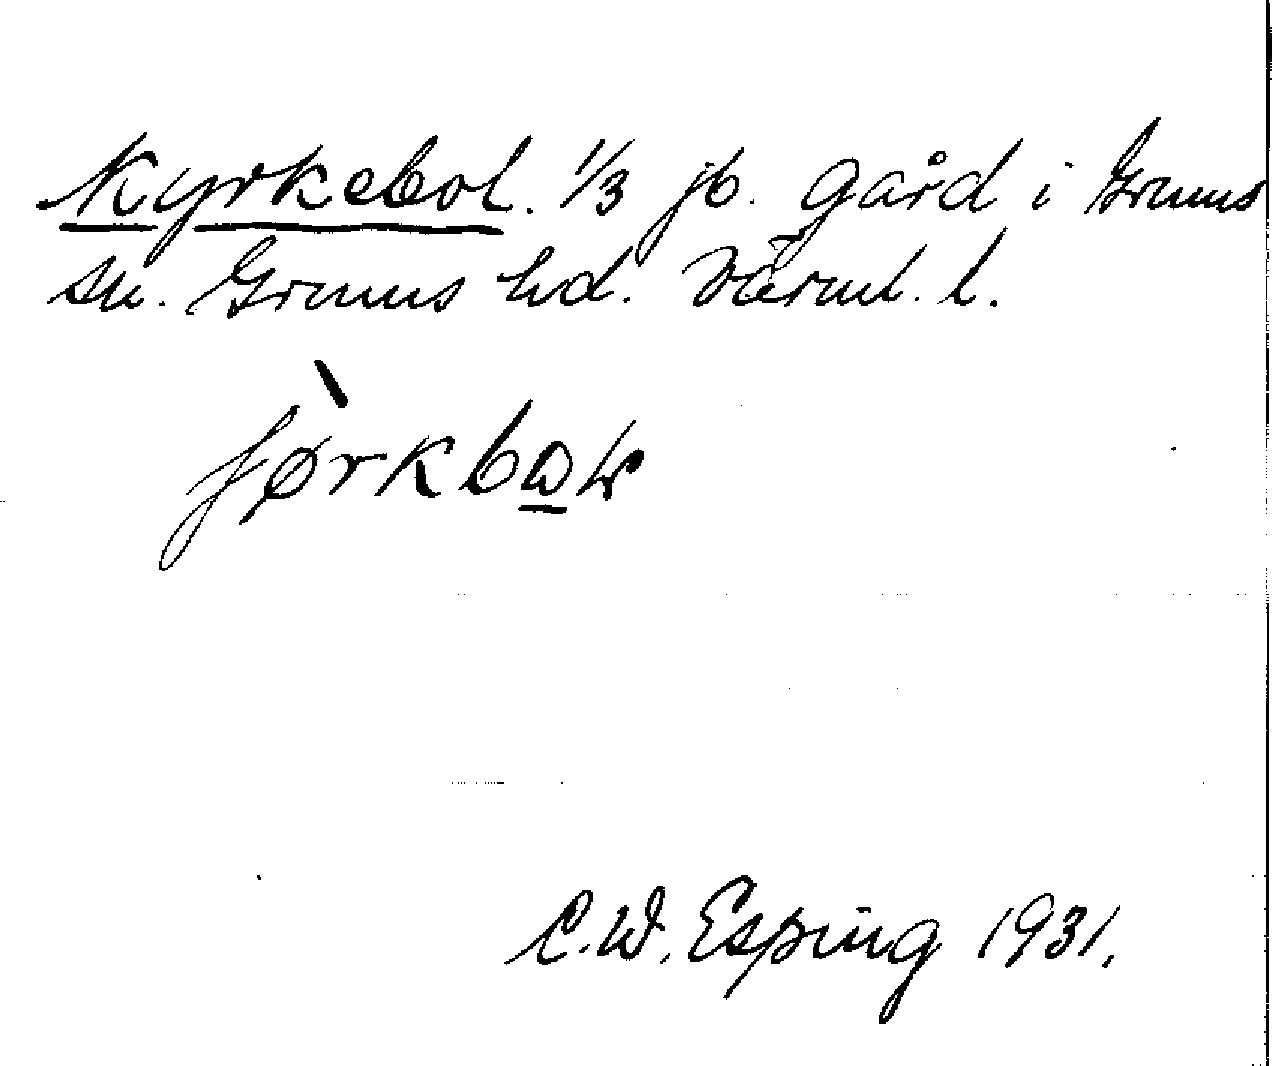 Kyrkebol. 1/3 jb. gård i Grums
sn. Grums hd. Värml. l.
C.W. Esping 1931.